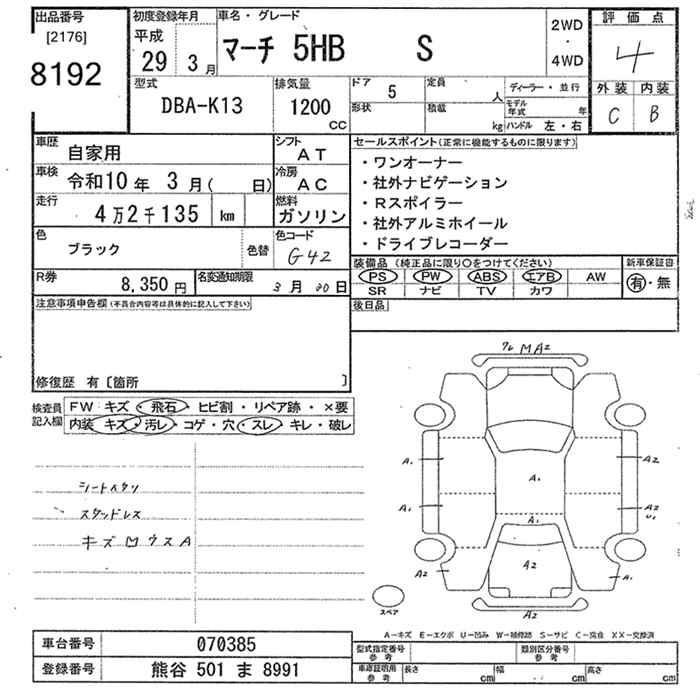 出品番号
[2176]
8192
初度登録年月
平成
29 3 月
車名・グレード
マーチ 5HB S
2WD
・
4WD
評価点
4
外装 内装
C B
型式
DBA-K13
排気量
1200
CC
ドア 5
定員 人
形状
積載 kg
ディーラー・並行
モデル年式 年
ハンドル 左・右
車歴 自家用
シフト AT
車検 令和10年 3月( 日)
冷房 AC
走行 4万2千135 km
燃料 ガソリン
色 ブラック
色替
色コード G42
R券 8,350 円
名変通知期限 3月30日
セールスポイント(正常に機能するものに限ります)
・ワンオーナー
・社外ナビゲーション
・Rスポイラー
・社外アルミホイール
・ドライブレコーダー
装備品(純正品に限り○をつけてください)
PS PW ABS エアB AW
SR ナビ TV カワ
新車保証書
有・無
後日品
注意事項申告欄(不具合内容等は具体的に記入して下さい)
修復歴 有〔箇所 〕
検査員記入欄
FW キズ・飛石・ヒビ割・リペア跡・×要
内装 キズ・汚レ・コゲ・穴・スレ・キレ・破レ
シートスレ
スタッドレス
キズMウスA
MA2
A1 A2
A1
A1 A2
U1
A1
A2 A2 A1
A2
スペア
A-キズ E-エクボ U-凹み W-補修跡 S-サビ C-腐食 XX-交換済
車台番号 070385
登録番号 熊谷 501 ま 8991
型式指定番号
参考
類別区分番号
参考
車庫証明用
参考
長さ cm 幅 cm 高さ cm